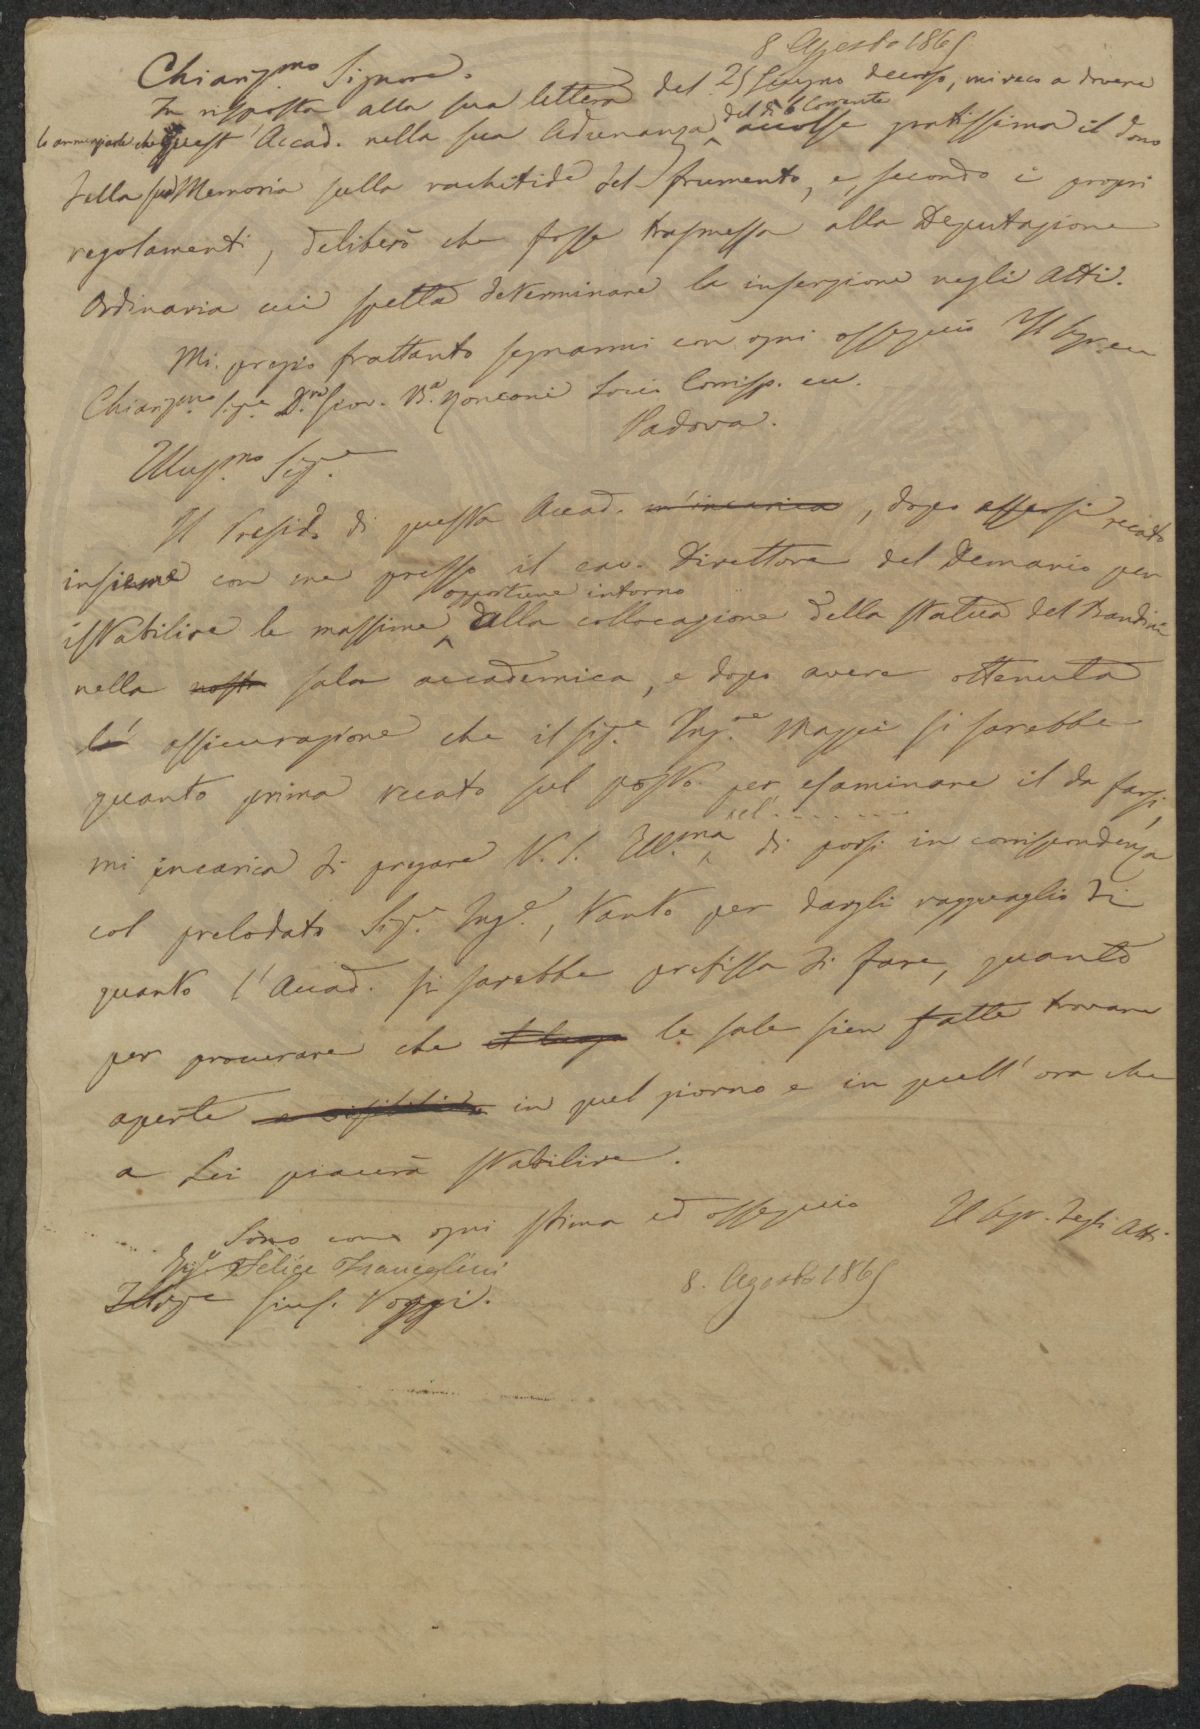 8 Agosto 1865
Chiarismo Signore.
In risposta alla sua lettera del 25 Giugno decorso, mi reco a dovere
lo annunziarle che quest'Accad. nella sua Adunanza del dì 6 Corrente accolse gratissima il dono
della sua Memoria sulla rachitide del frumento, e, secondo i propri
regolamenti, deliberò che fosse trasmessa alla Deputazione
Ordinaria cui spetta determinare la inserzione negli Atti.
Mi pregio frattanto segnarmi con ogni ossequio Il Segr. eu
Chiarismo Sig.e D.re Giov. B.a Ronconi Socio Corrisp. eu.
Padova.
Illus.mo Sig.e
Il Presid.e di questa Accad. m'incarica, dopo essersi recato
insieme con me presso il cav. Direttore del Demanio per
istabilire le massime opportune intorno alla collocazione della statua del Bandini
nella nostr sala accademica, e dopo avere ottenuta
l' assicurazione che il sig.e Ing.re si sarebbe
quanto prima recato sul posto per esaminare il da farsi,
mi incarica di pregare V. S. Ill.ma del........ di porsi in corrispondenza
col prelodato Sig.e Ing.e, tanto per dargli ragguaglio di
quanto l'Accad. si sarebbe prefissa di fare, quanto
per procurare che il luogo le sale sien fatte trovare
aperte e visibili in quel giorno e in quell'ora che
a Lei piacerà stabilire.
Sono con ogni stima ed ossequio Il Segr. degli Atti
Ing.e Felice Francolini
8. Agosto 1865
Gius.